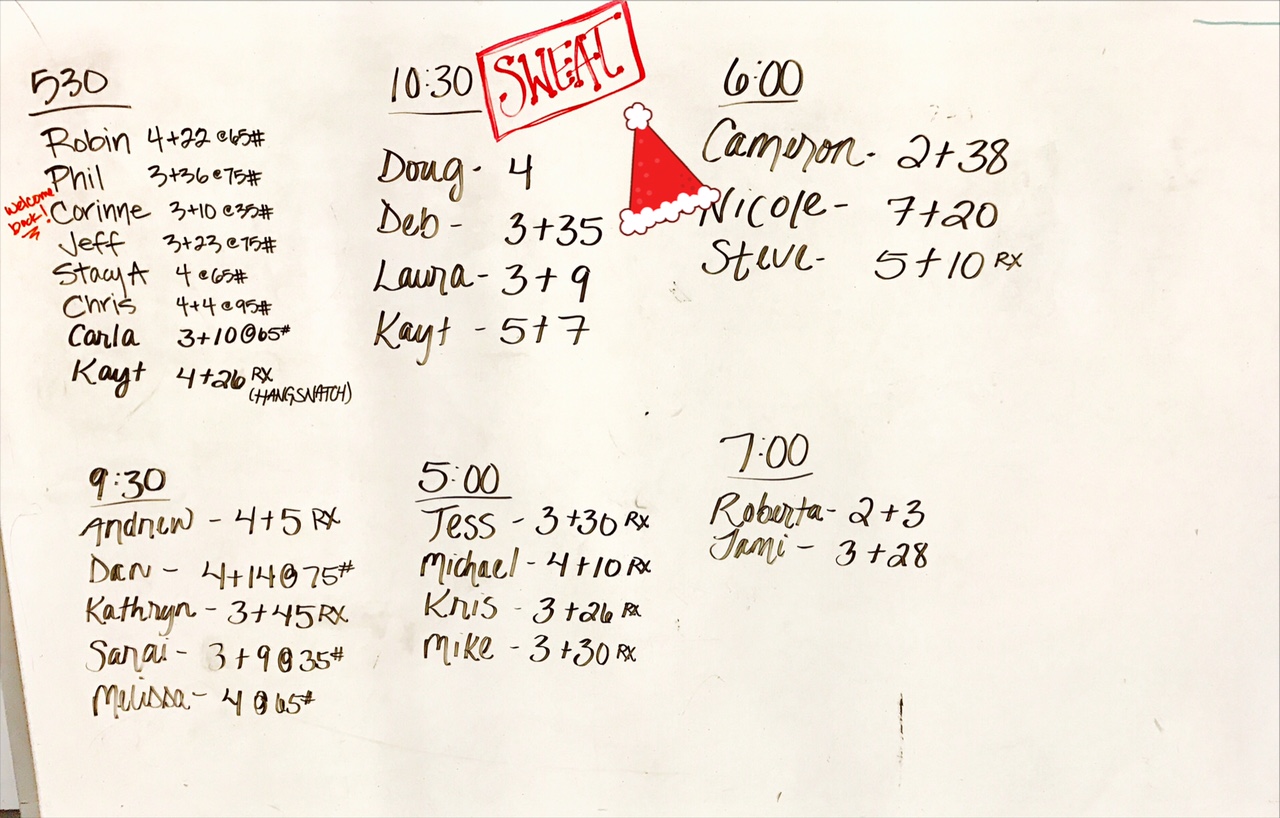 530
Robin 4+22 @65#
Phil 3+36 @75#
welcome back!
Corinne 3+10 @35#
Jeff 3+23 @75#
Stacy A 4 @65#
Chris 4+4 @95#
Carla 3+10@65#
Kayt 4+26 RX
(HANG SNATCH)
10:30 SWEAT
Doug - 4
Deb - 3+35
Laura - 3+9
Kayt - 5+7
6:00
Cameron - 2+38
Nicole - 7+20
Steve - 5+10 RX
9:30
Andrew - 4+5 RX
Dan - 4+14@75#
Kathryn - 3+45 RX
Sarai - 3+9@35#
Melissa - 4@65#
5:00
Tess - 3+30 RX
Michael - 4+10 RX
Kris - 3+26 RX
Mike - 3+30 RX
7:00
Roberta - 2+3
Jami - 3+28